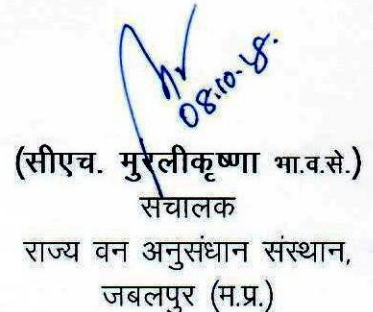 08.10.
(सीएच. मुरलीकृष्णा भा.व.से.)
संचालक
राज्य वन अनुसंधान संस्थान,
जबलपुर (म.प्र.)